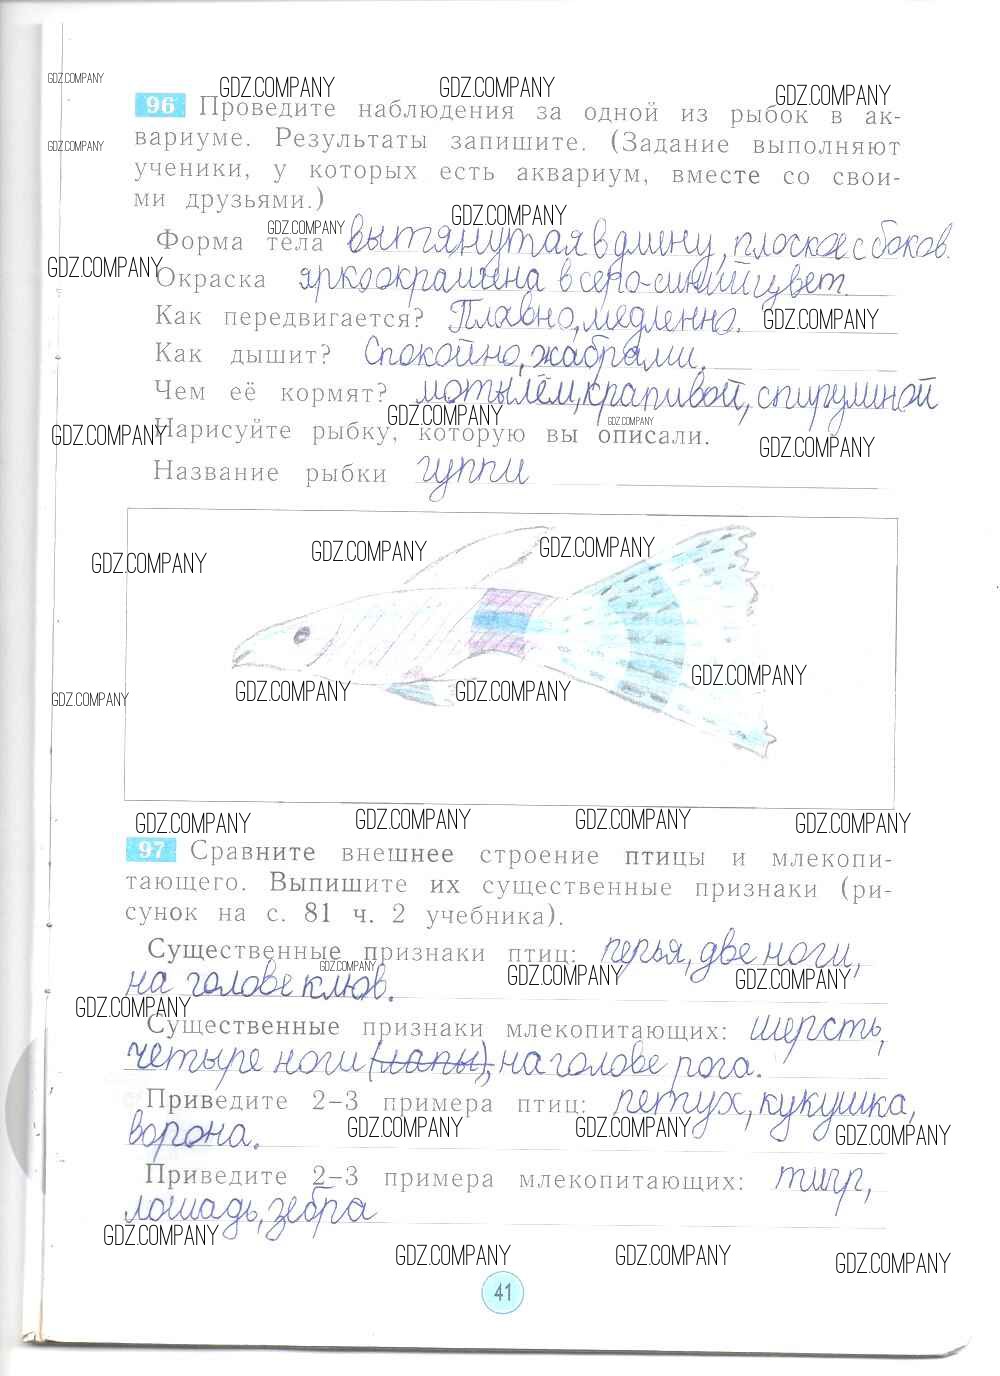 GDZ.COMPANY
GDZ.COMPANY GDZ.COMPANY GDZ.COMPANY
96 Проведите наблюдения за одной из рыбок в ак-
вариуме. Результаты запишите. (Задание выполняют
GDZ.COMPANY
ученики, у которых есть аквариум, вместе со свои-
ми друзьями.)
GDZ.COMPANY
GDZ.COMPANY
Форма тела вытянутая в длину, плоское с боков.
GDZ.COMPANY
Окраска ярко окрашена в серо-синий цвет.
Как передвигается? Плавно, медленно.
GDZ.COMPANY
Как дышит? Спокойно, жабрами.
Чем её кормят? мотылём, крапивой, спирулиной
GDZ.COMPANY GDZ.COMPANY
GDZ.COMPANY
Нарисуйте рыбку, которую вы описали.
GDZ.COMPANY
Название рыбки гуппи
GDZ.COMPANY GDZ.COMPANY GDZ.COMPANY
GDZ.COMPANY
GDZ.COMPANY GDZ.COMPANY GDZ.COMPANY
GDZ.COMPANY GDZ.COMPANY GDZ.COMPANY GDZ.COMPANY
97 Сравните внешнее строение птицы и млекопи-
тающего. Выпишите их существенные признаки (ри-
сунок на с. 81 ч. 2 учебника).
Существенные признаки птиц: перья, две ноги,
GDZ.COMPANY GDZ.COMPANY GDZ.COMPANY
на голове клюв.
GDZ.COMPANY
Существенные признаки млекопитающих: шерсть,
четыре ноги (лапы), на голове рога.
Приведите 2–3 примера птиц: петух, кукушка,
GDZ.COMPANY GDZ.COMPANY GDZ.COMPANY
ворона.
Приведите 2–3 примера млекопитающих: тигр,
лошадь, зебра
GDZ.COMPANY
GDZ.COMPANY GDZ.COMPANY GDZ.COMPANY
41